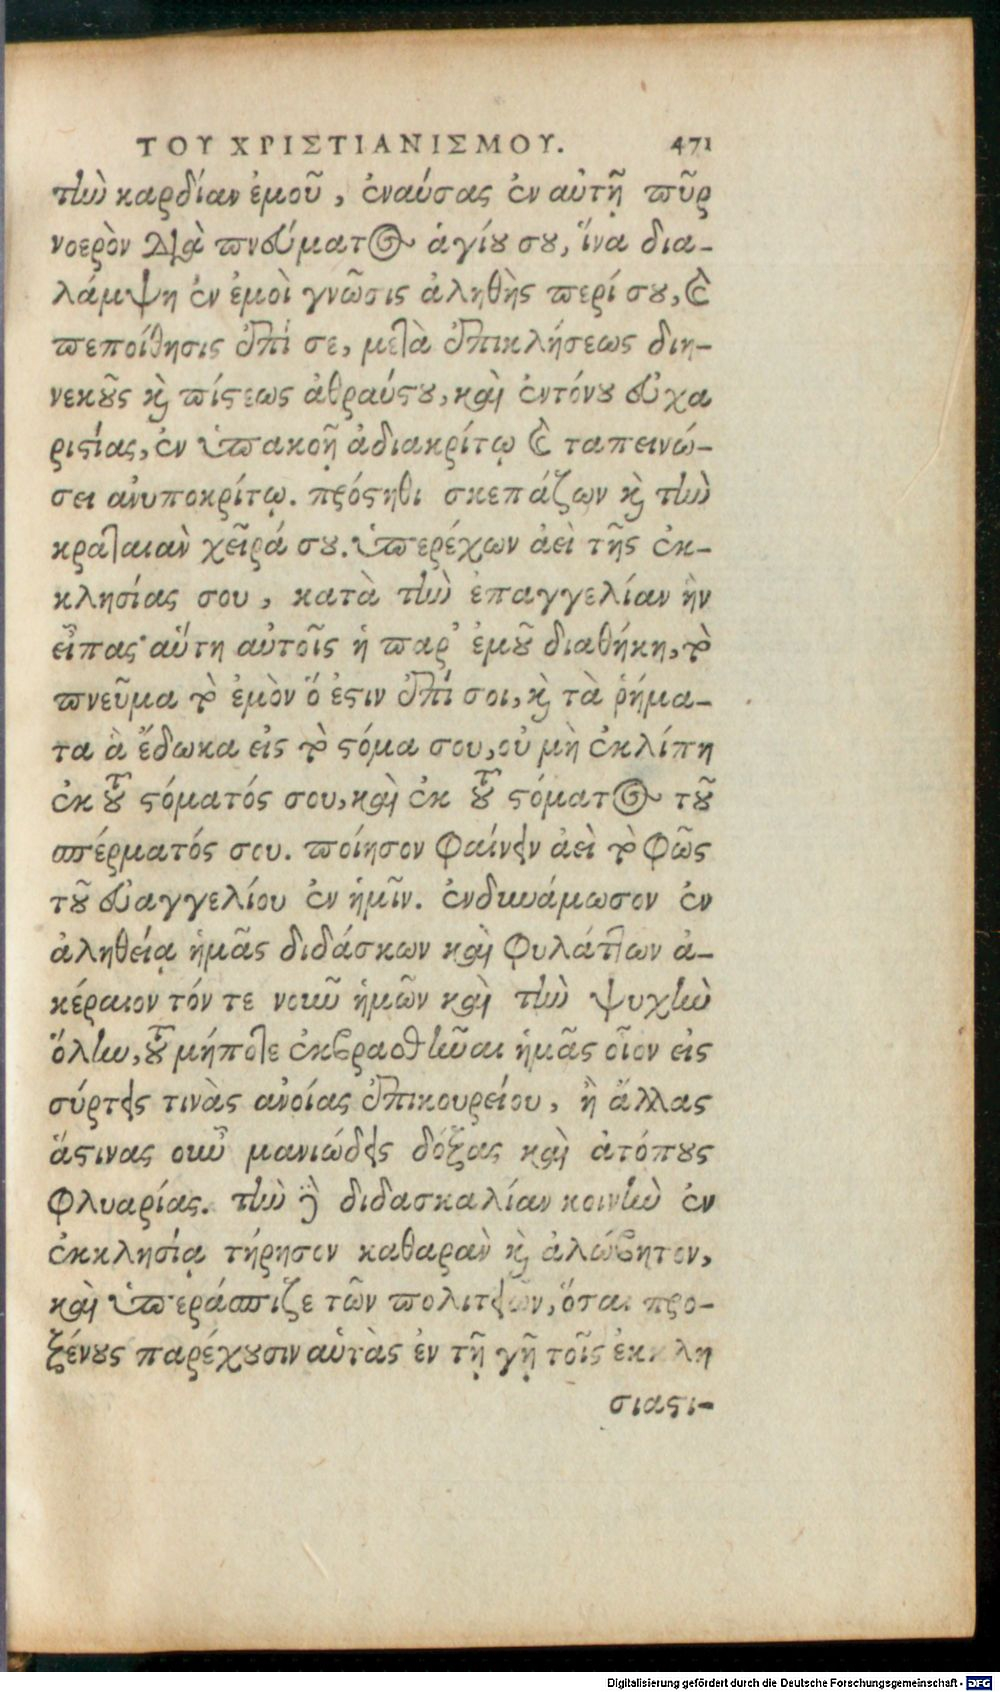 ΤΟΥ ΧΡΙΣΤΙΑΝΙΣΜΟΥ. 471
τὴν καρδίαν ἐμοῦ, ἐναύσας ἐν αὐτῇ πῦρ
νοερὸν διὰ πνεύματος ἁγίου σου, ἵνα δια-
λάμψῃ ἐν ἐμοὶ γνῶσις ἀληθὴς περί σου, καὶ
πεποίθησις ἐπί σε, μετὰ ἐπικλήσεως διη-
νεκοῦς καὶ πίστεως ἀθραύστου, καὶ ἐντόνου εὐχα
ριστίας, ἐν ὑπακοῇ ἀδιακρίτῳ καὶ ταπεινώ-
σει ἀνυποκρίτῳ. πρόστηθι σκεπάζων καὶ τὴν
κραταιὰν χεῖρά σου. ὑπερέχων ἀεὶ τῆς ἐκ-
κλησίας σου, κατὰ τὴν ἐπαγγελίαν ἣν
εἶπας· αὕτη αὐτοῖς ἡ παρ' ἐμοῦ διαθήκη, τὸ
πνεῦμα τὸ ἐμὸν ὅ ἐστιν ἐπί σοι, καὶ τὰ ῥήμα-
τα ἃ ἔδωκα εἰς τὸ στόμα σου, οὐ μὴ ἐκλίπῃ
ἐκ τοῦ στόματός σου, καὶ ἐκ τοῦ στόματος τοῦ
σπέρματός σου. ποίησον φαίνειν ἀεὶ τὸ φῶς
τοῦ εὐαγγελίου ἐν ἡμῖν. ἐνδυνάμωσον ἐν
ἀληθείᾳ ἡμᾶς διδάσκων καὶ φυλάττων ἀ-
κέραιον τόν τε νοῦν ἡμῶν καὶ τὴν ψυχὴν
ὅλην, τοῦ μήποτε ἐκβρασθῆναι ἡμᾶς οἷον εἰς
σύρτεις τινὰς ἀνοίας ἐπικουρείου, ἢ ἄλλας
ἅστινας οὖν μανιώδεις δόξας καὶ ἀτόπους
φλυαρίας. τὴν δὲ διδασκαλίαν κοινὴν ἐν
ἐκκλησίᾳ τήρησον καθαρὰν καὶ ἀλώβητον,
καὶ ὑπεράσπιζε τῶν πολιτειῶν, ὅσαι προ-
ξένους παρέχουσιν αὑτὰς ἐν τῇ γῇ τοῖς ἐκκλη
σιαστι-
Digitalisierung gefördert durch die Deutsche Forschungsgemeinschaft - DFG